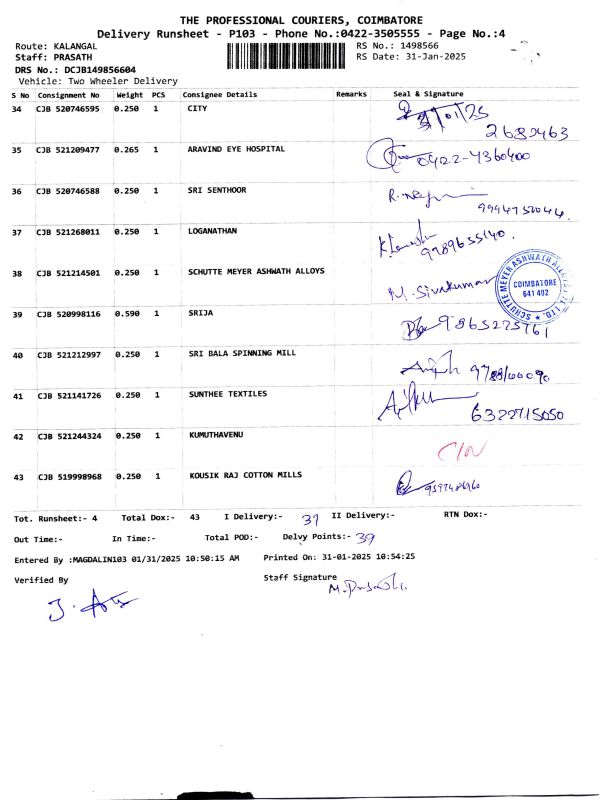 THE PROFESSIONAL COURIERS, COIMBATORE
Delivery Runsheet - P103 - Phone No.:0422-3505555 - Page No.:4
Route: KALANGAL RS No.: 1498566
Staff: PRASATH RS Date: 31-Jan-2025
DRS No.: DCJB149856604
Vehicle: Two Wheeler Delivery
S No Consignment No Weight PCS Consignee Details Remarks Seal & Signature
34 CJB 520746595 0.250 1 CITY
2682463
35 CJB 521209477 0.265 1 ARAVIND EYE HOSPITAL 0422-4360400
36 CJB 520746588 0.250 1 SRI SENTHOOR
37 CJB 521268011 0.250 1 LOGANATHAN
38 CJB 521214501 0.250 1 SCHUTTE MEYER ASHWATH ALLOYS M. Sivakumar
SCHUTTE MEYER ASHWATH ALLOYS LTD.
COIMBATORE
641 402
39 CJB 520998116 0.590 1 SRIJA
40 CJB 521212997 0.250 1 SRI BALA SPINNING MILL
41 CJB 521141726 0.250 1 SUNTHEE TEXTILES 6322715050
42 CJB 521244324 0.250 1 KUMUTHAVENU
43 CJB 519998968 0.250 1 KOUSIK RAJ COTTON MILLS
Tot. Runsheet:- 4 Total Dox:- 43 I Delivery:- II Delivery:- RTN Dox:-
Out Time:- In Time:- Total POD:- Delvy Points:- 39
Entered By :MAGDALIN103 01/31/2025 10:50:15 AM Printed On: 31-01-2025 10:54:25
Verified By Staff Signature